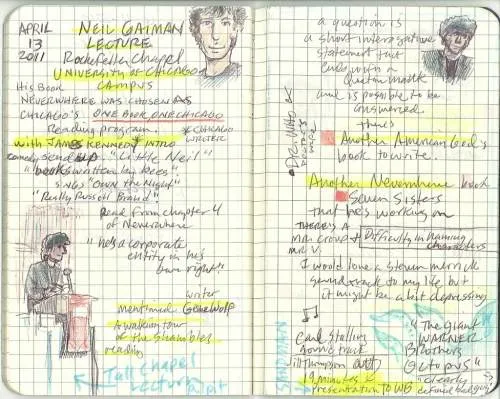 APRIL
13
2011
NEIL GAIMAN
LECTURE
Rockefeller Chapel
UNIVERSITY of CHICAGO
CAMPUS
His Book
NEVERWHERE WAS CHOSEN AS
CHICAGO'S ONE BOOK, ONE CHICAGO
Reading program.
* CHICAGO
WRITER
with JAMES KENNEDY* INTRO
comedy send up. "Little Neil"
"books written by bees"
sings "Own the Night"
"Really Russell Brand"
Read from chapter 4
of Neverwhere
"he's a corporate
entity in his
own right"
writer
mentioned Gene Wolf
A walking tour
of the Shambles
reading
Tall Chapel
Lecture Pulpit
a question is
a short interogative
statement that
ends with a
Question Mark
and is possible to be
answered.
DR. WHO
there's
Another American Gods
book to write.
Another Neverwhere book
Seven Sisters
that he's working on
THERE'S A
MR. CROUP &
MR. V.
Difficulty in naming
characters
I would love a steven merrick
sound track to my life but
it might be a bit depressing
SANDMAN
Carl Stalling
sound track
Jill Thompson
19 minutes
presentation TO WB
"The Giant
WARNER
Brothers
Octopus"
clearly
defined bad guy